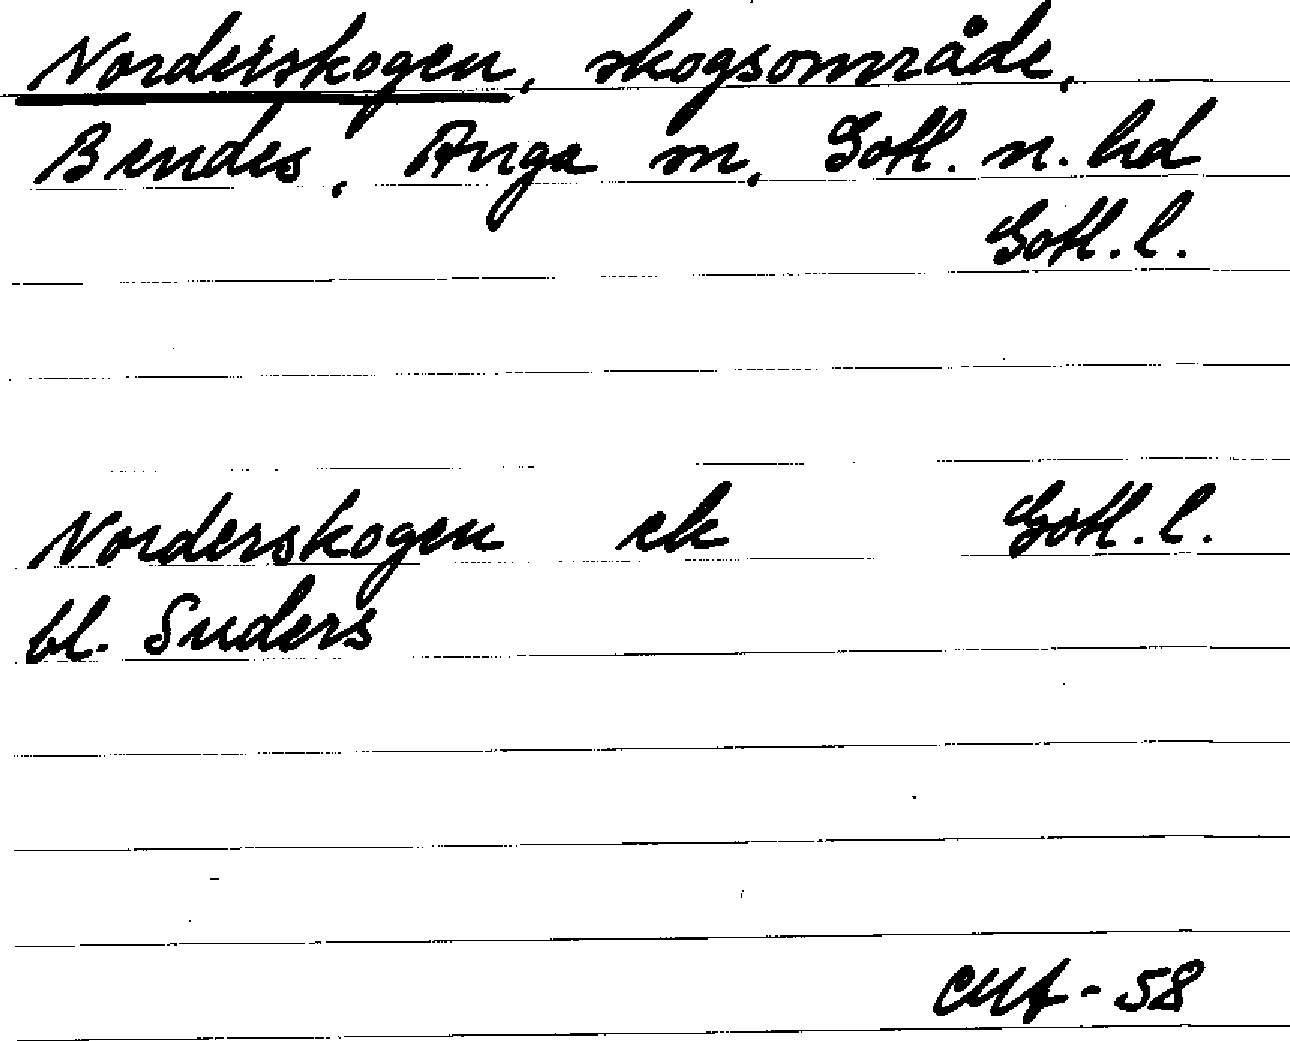 Norderskogen, skogsområde,
Bendes, Anga sn, Gotl. n. hd
Gotl. l.
Norderskogen ek Gotl. l.
bl. Suders
58